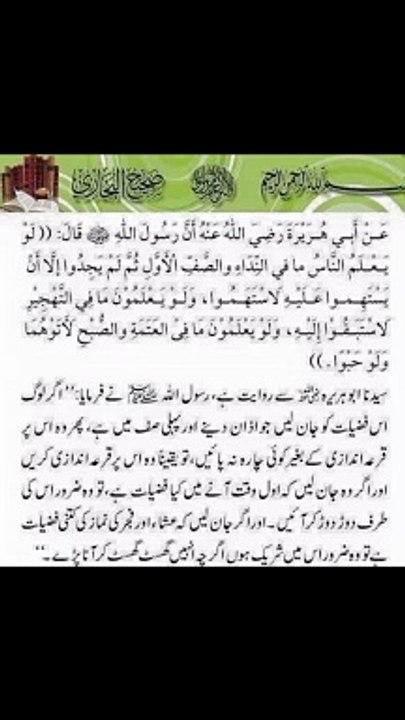 صحيح البخاري
بسم الله الرحمن الرحيم
عَنْ أَبِي هُرَيْرَةَ رَضِيَ اللهُ عَنْهُ أَنَّ رَسُولَ اللهِ ﷺ قَالَ: ((لَوْ
يَعْلَمُ النَّاسُ مَا فِي النِّدَاءِ وَالصَّفِّ الْأَوَّلِ ثُمَّ لَمْ يَجِدُوا إِلَّا أَنْ
يَسْتَهِمُوا عَلَيْهِ لَاسْتَهَمُوا، وَلَوْ يَعْلَمُونَ مَا فِي التَّهْجِيرِ
لَاسْتَبَقُوا إِلَيْهِ، وَلَوْ يَعْلَمُونَ مَا فِى الْعَتَمَةِ وَالصُّبْحِ لَأَتَوْهُمَا
وَلَوْ حَبْوًا۔))
سیدنا ابو ہریرہ رضی اللہ عنہ سے روایت ہے، رسول اللہ ﷺ نے فرمایا: ’’اگر لوگ
اس فضیلت کو جان لیں جو اذان دینے اور پہلی صف میں ہے، پھر وہ اس پر
قرعہ اندازی کے بغیر کوئی چارہ نہ پائیں، تو یقیناً وہ اس پر قرعہ اندازی کریں
اور اگر وہ جان لیں کہ اول وقت آنے میں کیا فضیلت ہے، تو وہ ضرور اس کی
طرف دوڑ دوڑ کر آئیں۔ اور اگر جان لیں کہ عشاء اور فجر کی نماز کی کتنی فضیلت
ہے تو وہ ضرور اس میں شریک ہوں اگرچہ انہیں گھسٹ گھسٹ کر آنا پڑے۔‘‘